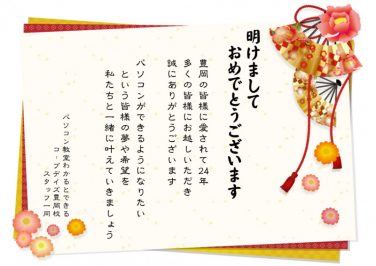 明けまして
おめでとうございます
豊岡の皆様に愛されて24年
多くの皆様にお越しいただき
誠にありがとうございます
パソコンができるようになりたい
という皆様の夢や希望を
私たちと一緒に叶えていきましょう
パソコン教室わかるとできる
コープデイズ豊岡校
スタッフ一同